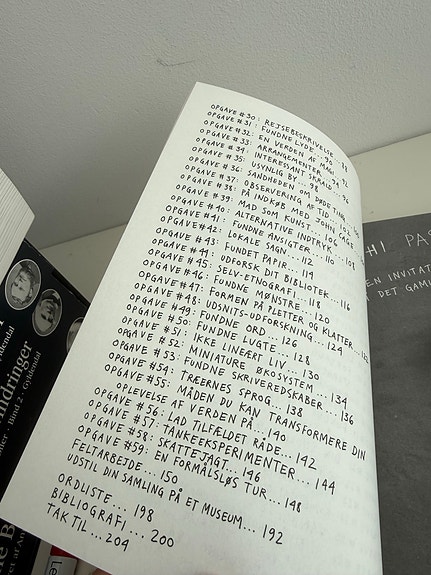 OPGAVE #30: REJSEBESKRIVELSE...
OPGAVE #31: FUNDNE LYDE... 90
OPGAVE #32: EN VERDEN AF MAGI
OPGAVE #33: ARRANGEMENTER... 92
OPGAVE #34: INTERESSANT SKRALD
OPGAVE #35: USYNLIG BY... 98
OPGAVE #36: SANDHEDEN OM DØDE TING
OPGAVE #37: OBSERVERING AF TID...
OPGAVE #38: PÅ INDKØB MED JOHN CAGE
OPGAVE #39: MAD SOM KUNST... 106
OPGAVE #40: ALTERNATIVE INDTRYK... 108
OPGAVE #41: FUNDNE ANSIGTER... 110
OPGAVE #42: LOKALE SAGN... 112
OPGAVE #43: FUNDET PAPIR... 114
OPGAVE #44: UDFORSK DIT BIBLIOTEK... 116
OPGAVE #45: SELV-ETNOGRAFI... 118
OPGAVE #46: FUNDNE MØNSTRE... 120
OPGAVE #47: FORMEN PÅ PLETTER OG KLATTER... 122
OPGAVE #48: UDSNITS-UDFORSKNING... 124
OPGAVE #49: FUNDNE ORD... 126
OPGAVE #50: FUNDNE LUGTE... 128
OPGAVE #51: IKKE LINEÆRT LIV... 130
OPGAVE #52: MINIATURE ØKOSYSTEM... 134
OPGAVE #53: FUNDNE SKRIVEREDSKABER... 136
OPGAVE #54: TRÆERNES SPROG... 138
OPGAVE #55: MÅDEN DU KAN TRANSFORMERE DIN
OPLEVELSE AF VERDEN PÅ... 140
OPGAVE #56: LAD TILFÆLDET RÅDE... 142
OPGAVE #57: TANKEEKSPERIMENTER... 144
OPGAVE #58: SKATTEJAGT... 146
OPGAVE #59: EN FORMÅLSLØS TUR... 148
FELTARBEJDE... 150
UDSTIL DIN SAMLING PÅ ET MUSEUM... 192
ORDLISTE... 198
BIBLIOGRAFI... 200
TAK TIL... 204
HI PAS
EN INVITAT
DET GAML
ndringer
Bind 2 · Gyldendal